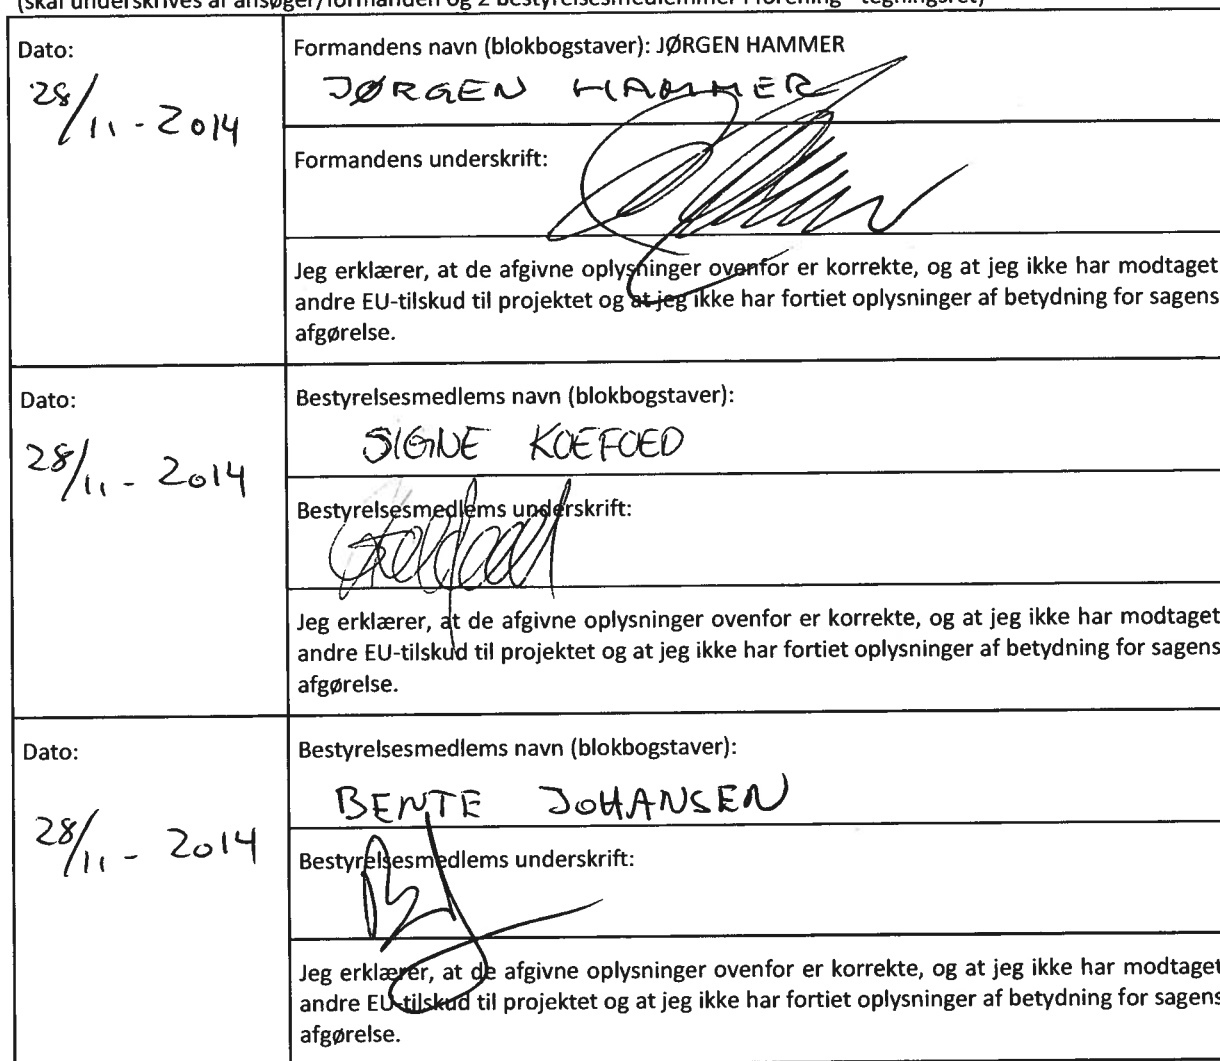 (skal underskrives af ansøger/formanden og 2 bestyrelsesmedlemmer i forening - tegningsret)
Dato:
28/11 - 2014
Formandens navn (blokbogstaver): JØRGEN HAMMER
JØRGEN HAMMER
Formandens underskrift:
Jeg erklærer, at de afgivne oplysninger ovenfor er korrekte, og at jeg ikke har modtaget
andre EU-tilskud til projektet og at jeg ikke har fortiet oplysninger af betydning for sagens
afgørelse.
Dato:
28/11 - 2014
Bestyrelsesmedlems navn (blokbogstaver):
SIGNE KOEFOED
Bestyrelsesmedlems underskrift:
Jeg erklærer, at de afgivne oplysninger ovenfor er korrekte, og at jeg ikke har modtaget
andre EU-tilskud til projektet og at jeg ikke har fortiet oplysninger af betydning for sagens
afgørelse.
Dato:
28/11 - 2014
Bestyrelsesmedlems navn (blokbogstaver):
BENTE JOHANSEN
Bestyrelsesmedlems underskrift:
Jeg erklærer, at de afgivne oplysninger ovenfor er korrekte, og at jeg ikke har modtaget
andre EU-tilskud til projektet og at jeg ikke har fortiet oplysninger af betydning for sagens
afgørelse.